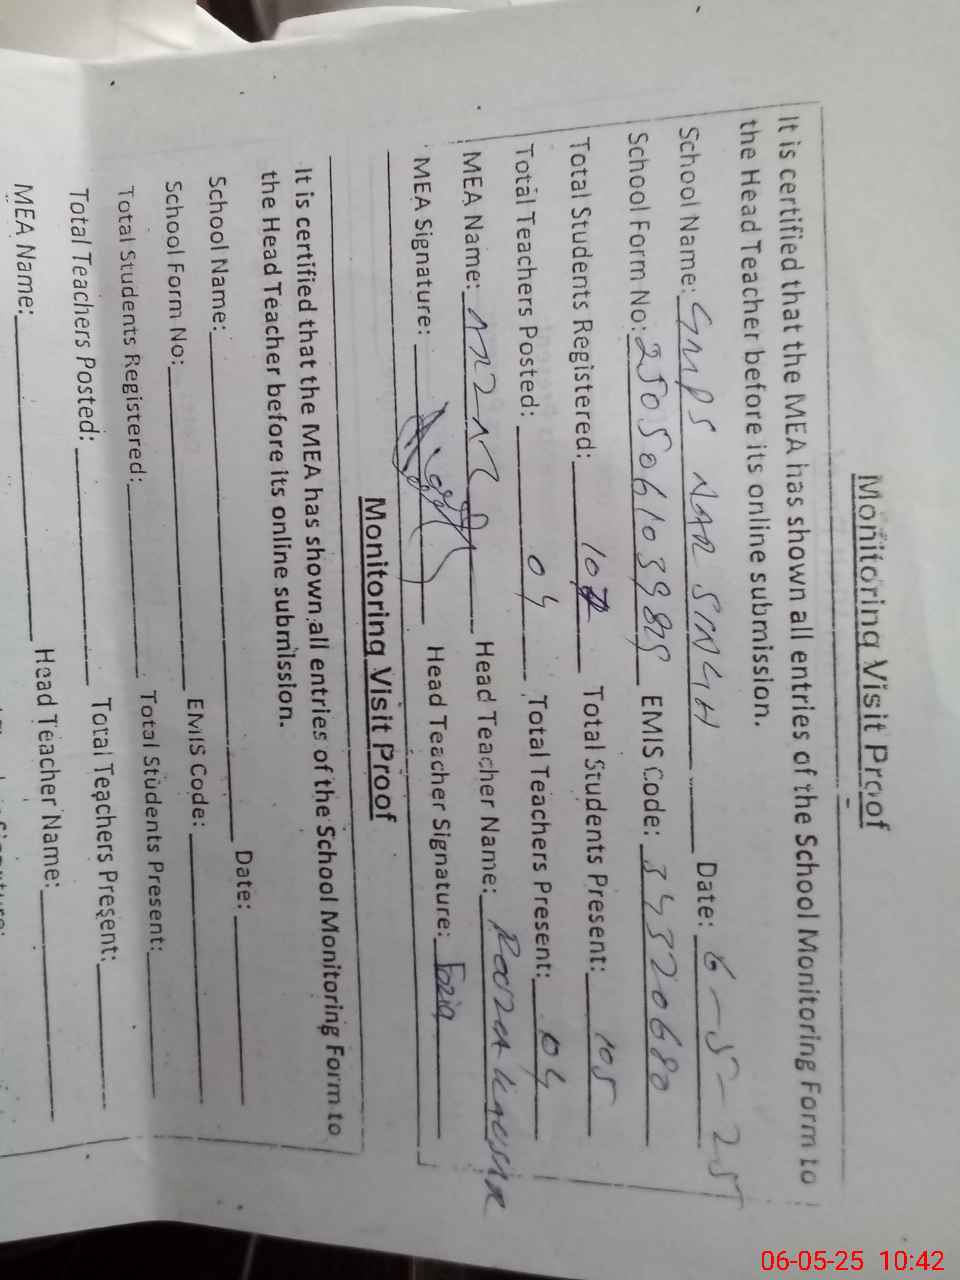 Monitoring Visit Proof
It is certified that the MEA has shown all entries of the School Monitoring Form to
the Head Teacher before its online submission.
School Name: GMPS NAR SINGH Date: 6-5-25
School Form No: EMIS Code: 34320680
Total Students Registered: Total Students Present: 105
Total Teachers Posted: 04 Total Teachers Present: 04
MEA Name: Head Teacher Name:
MEA Signature: Head Teacher Signature: Fozia
Monitoring Visit Proof
It is certified that the MEA has shown all entries of the School Monitoring Form to
the Head Teacher before its online submission.
School Name: Date:
School Form No: EMIS Code:
Total Students Registered: Total Students Present:
Total Teachers Posted: Total Teachers Present:
MEA Name: Head Teacher Name:
06-05-25 10:42